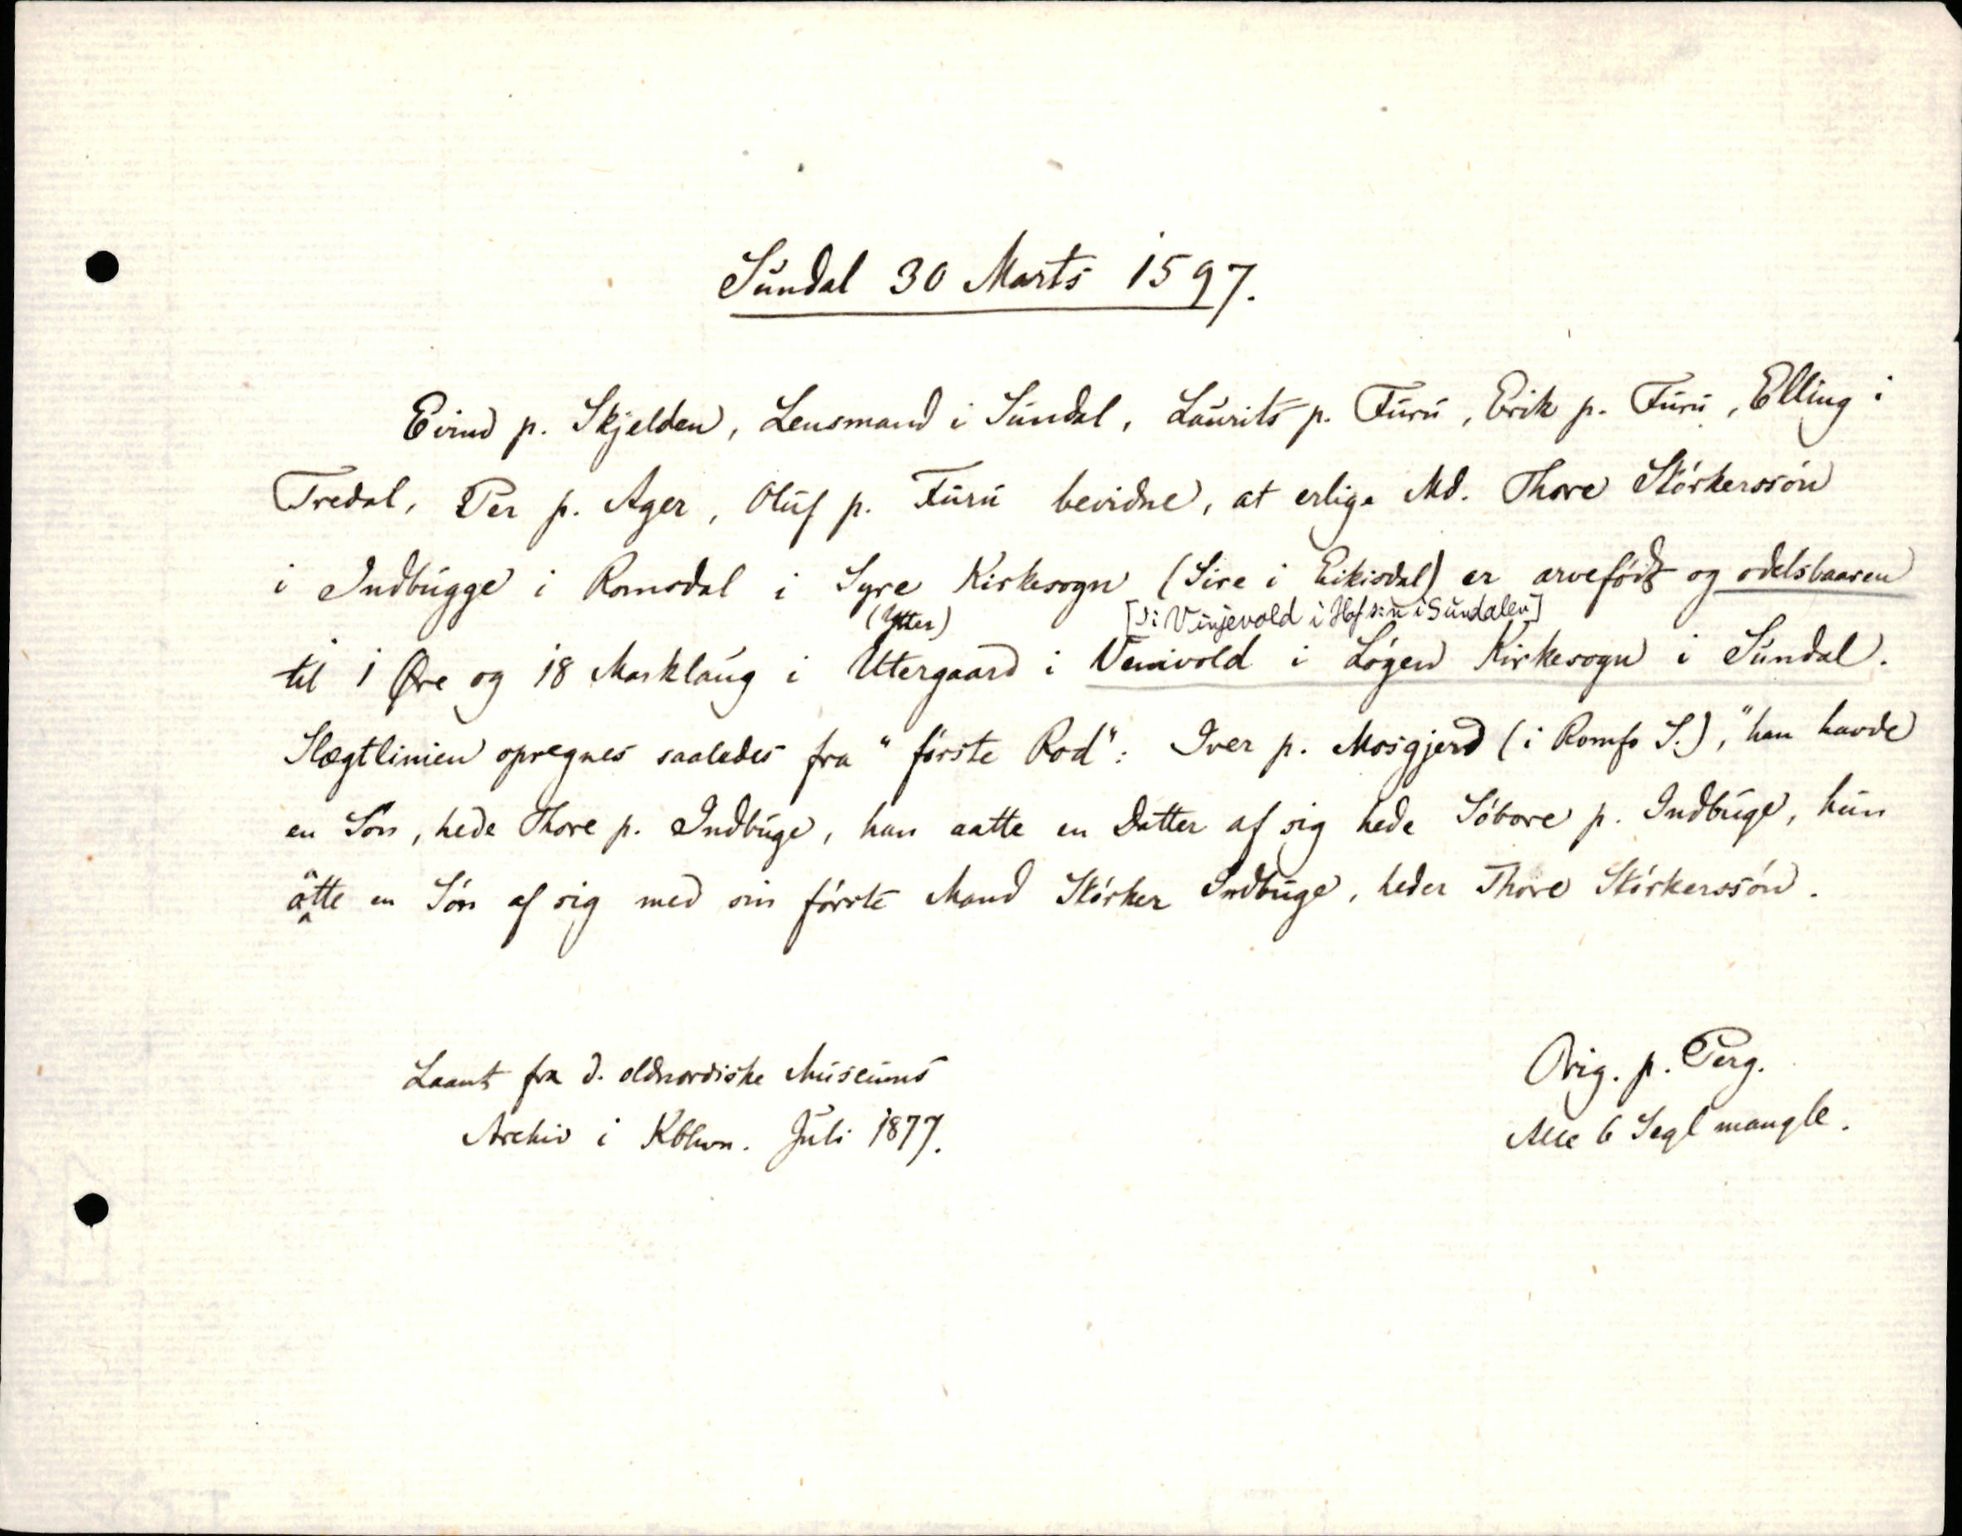 Sundal 30 Marts 1597.
Eivind p. Skjelden, Lensmand i Sundal, Laurits p. Furu, Erik p. Furu, Elling i
Tredal, Per p. Ager, Oluf p. Furu bevidne, at erlige Md. Thore Störkerssön
i Indbugge i Romsdal i Syre Kirkesogn (Sire i Eikisdal) er arveföd og odelsbaaren
(Ytter) [ɔ: Vinjevold i Hof s:n i Sundalen]
til 1 Øre og 18 Marklaug i Utergaard i Venivold i Lögen Kirkesogn i Sundal.
Slægtlinien opregnes saaledes fra "förste Rod": Iver p. Mosgjerd (i Romfo S.), "han havde
en Sön, hede Thore p. Indbuge, han aatte en Datter af sig hede Söbore p. Indbuge, hun
åtte en Sön af sig med sin förste Mand Störker Indbuge, heder Thore Störkerssön.
Laant fra d. oldnordiske Museums
Archiv i Kbhvn. Juli 1877.
Orig. p. Perg.
Alle 6 Segl mangle.